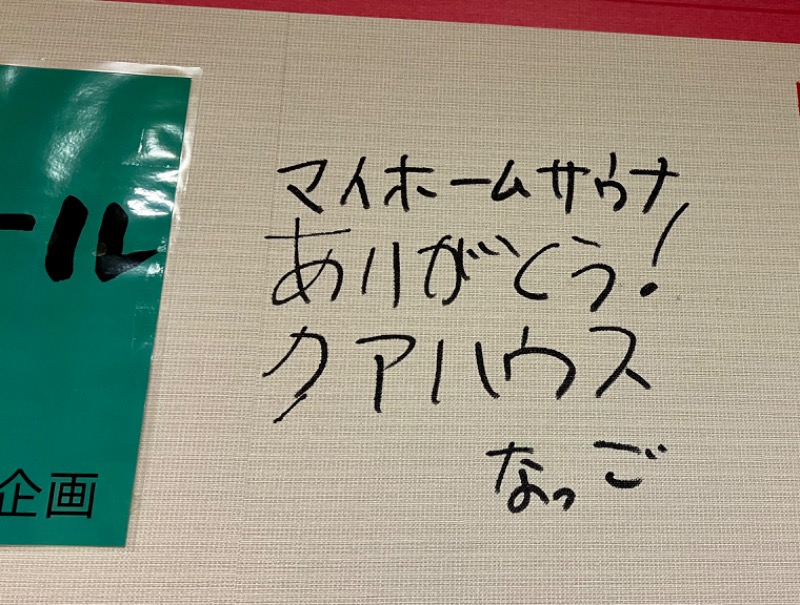 マイホームサウナ
ありがとう!
クアハウス
なっご
ール
企画